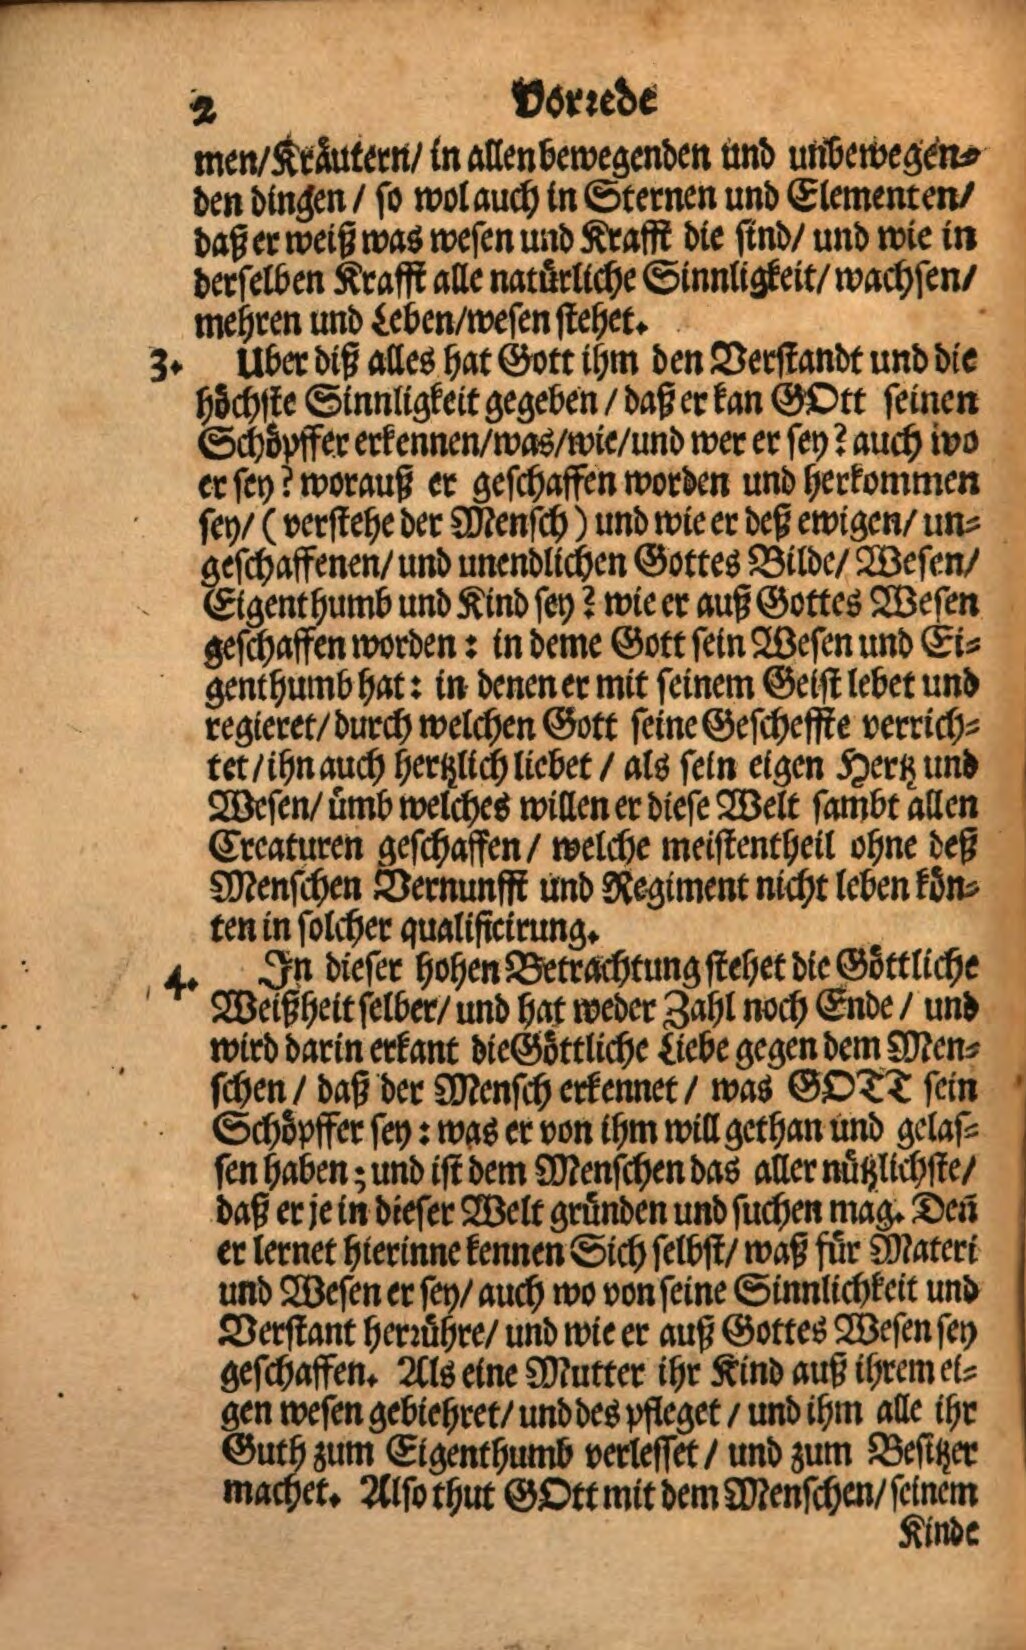 2 Vorrede
men/Kräutern/ in allen bewegenden und unbewegen-
den dingen / so wol auch in Sternen und Elementen/
daß er weiß was wesen und Krafft die sind/ und wie in
derselben Krafft alle natürliche Sinnligkeit/ wachsen/
mehren und Leben/wesen stehet.
3. Uber diß alles hat Gott ihm den Verstandt und die
höchste Sinnligkeit gegeben / daß er kan GOtt seinen
Schöpffer erkennen/was/wie/und wer er sey? auch wo
er sey? worauß er geschaffen worden und herkommen
sey/ ( verstehe der Mensch ) und wie er deß ewigen/ un-
geschaffenen/ und unendlichen Gottes Bilde/ Wesen/
Eigenthumb und Kind sey? wie er auß Gottes Wesen
geschaffen worden: in deme Gott sein Wesen und Ei-
genthumb hat: in denen er mit seinem Geist lebet und
regieret/ durch welchen Gott seine Gescheffte verrich-
tet / ihn auch hertzlich liebet / als sein eigen Hertz und
Wesen/ ümb welches willen er diese Welt sambt allen
Creaturen geschaffen / welche meistentheil ohne deß
Menschen Vernunfft und Regiment nicht leben kön-
ten in solcher qualificirung.
4. In dieser hohen Betrachtung stehet die Göttliche
Weißheit selber/ und hat weder Zahl noch Ende / und
wird darin erkant die Göttliche Liebe gegen dem Men-
schen / daß der Mensch erkennet / was GOTT sein
Schöpffer sey: was er von ihm will gethan und gelas-
sen haben; und ist dem Menschen das aller nützlichste/
daß er je in dieser Welt gründen und suchen mag. Deñ
er lernet hierinne kennen Sich selbst/ waß für Materi
und Wesen er sey/ auch wo von seine Sinnlichkeit und
Verstant herrühre/ und wie er auß Gottes Wesen sey
geschaffen. Als eine Mutter ihr Kind auß ihrem ei-
gen wesen gebiehret/ und des pfleget / und ihm alle ihr
Guth zum Eigenthumb verlesset / und zum Besitzer
machet. Also thut GOtt mit dem Menschen/ seinem
Kinde